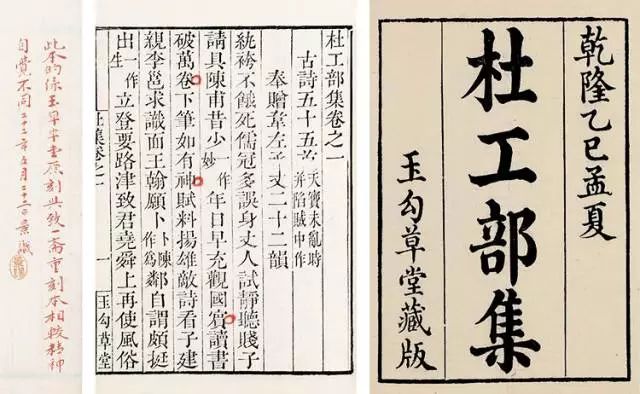 乾隆乙巳孟夏
杜工部集
玉勾草堂藏版
杜工部集卷之一
古詩五十五首 天寶未亂時并陷賊中作
奉贈韋左丞丈二十二韻
紈袴不餓死儒冠多誤身丈人試靜聽賤子
請具陳甫昔少一作妙年日早充觀國賓讀書
破萬卷下筆如有神賦料揚雄敵詩看子建
親李邕求識面王翰願卜卜陳作為鄰自謂頗挺
出一作生立登要路津致君堯舜上再使風俗
杜集卷之一 一 玉勾草堂
此本的係玉勾草堂原刻與致一齋重刻本相較精神
自覺不同二十二年五月二十二日景識